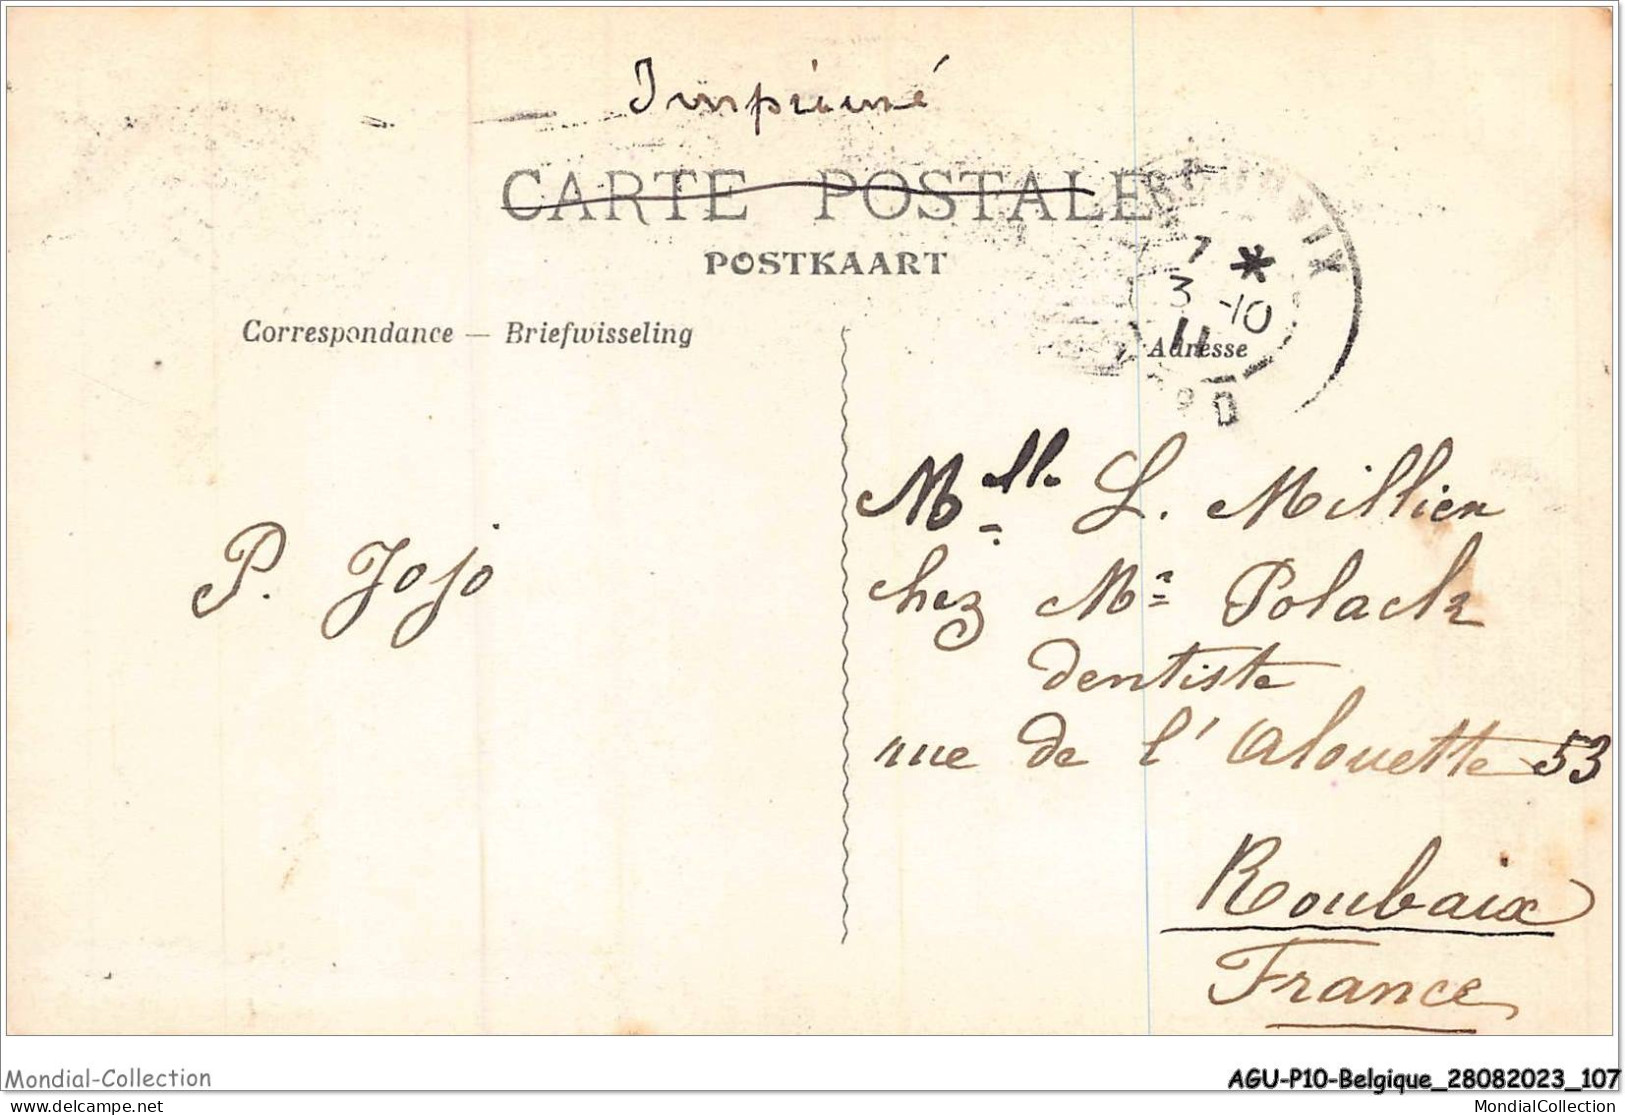 Imprimé
CARTE POSTALE
POSTKAART
Correspondance — Briefwisseling
Adresse
ROUBAIX
7 *
3 -10
11
Mlle L. Millien
chez Mr Polack
dentiste
rue de l'Alouette 53
Roubaix
France
P. Jojo
Mondial-Collection
AGU-P10-Belgique_28082023_107
delcampe.net
MondialCollection